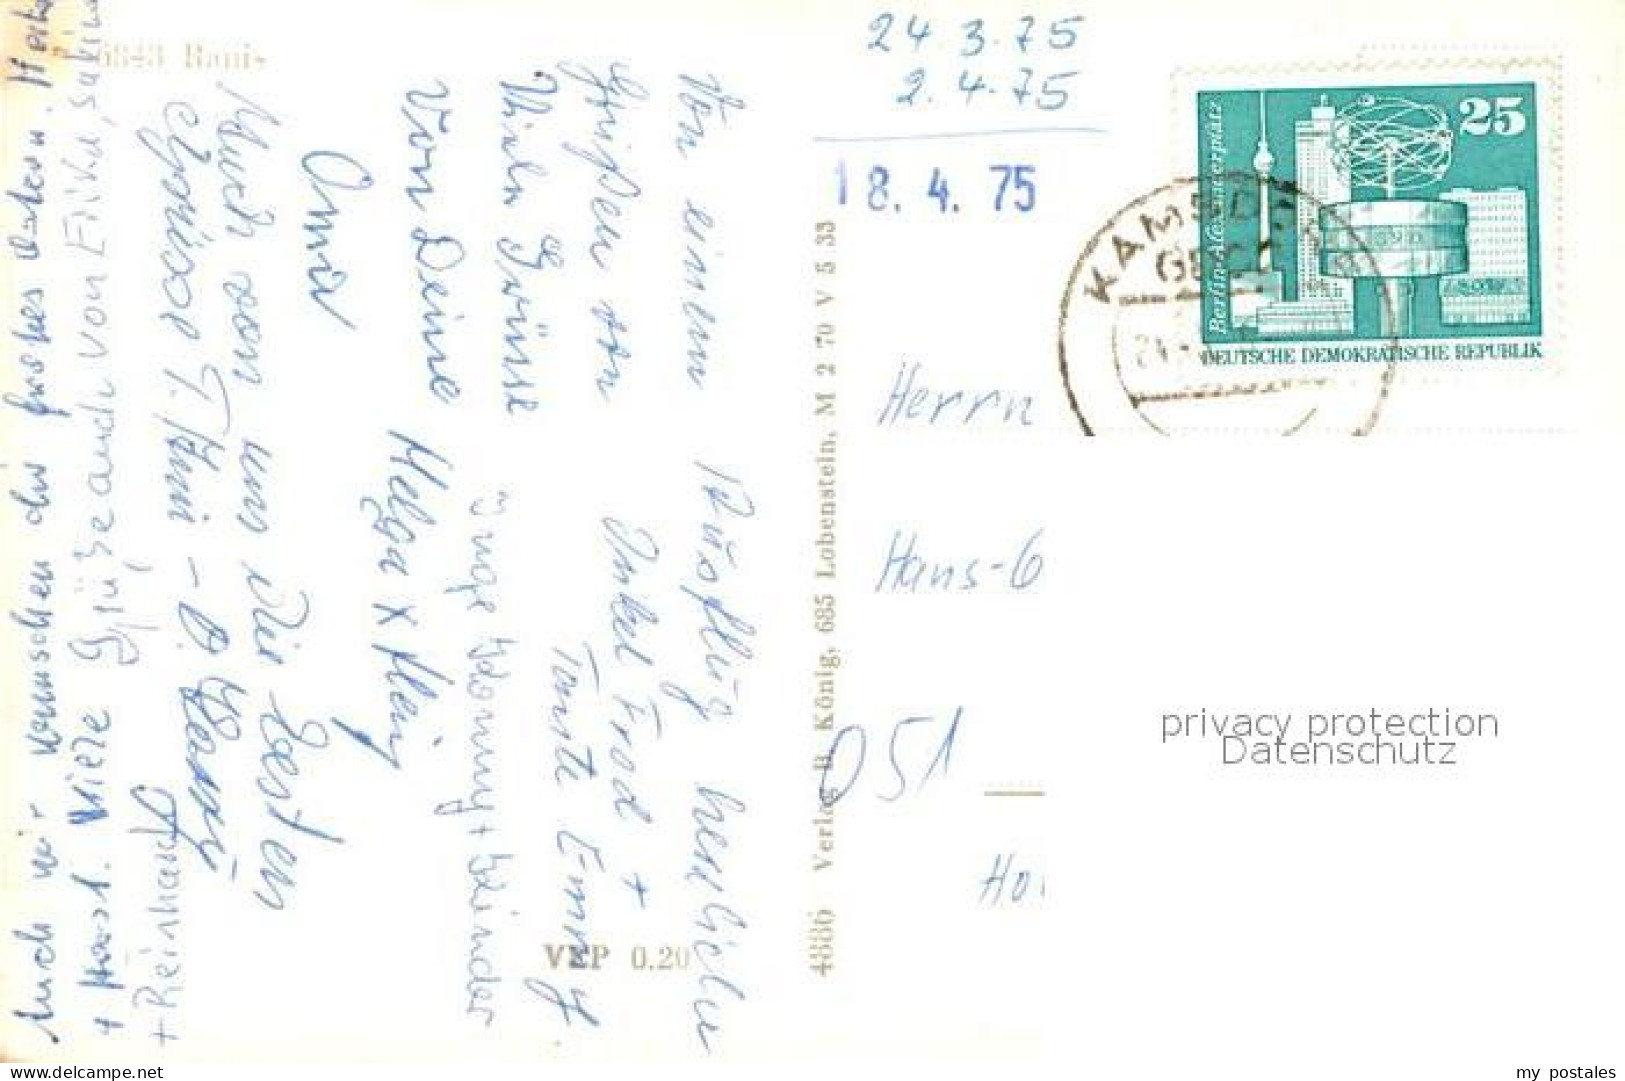 6843 Ranis
Von einem Ausflug herzlichen
Grüßen von Onkel Fred +
Tante Emmy.
Viele Grüsse
von Deine
Inge Konny + Kinder
Helga + Heinz
Omi
Auch von uns Dir Besten
Grüsse T. Anni - O. Henry
Auch wir wünschen dir frohes Ostern.
+ Horst. Viele Grüße auch von Erika, Sabine
+ Reinhard
VEP 0.20
4886 Verlag R. König, 685 Lobenstein, M 2 70 V 5 33
24.3.75
2.4.75
18.4.75
25
Berlin-Alexanderplatz
DEUTSCHE DEMOKRATISCHE REPUBLIK
KAMSD
Herrn
Hans-G
051
privacy protection
Datenschutz
my postales
www.delcampe.net